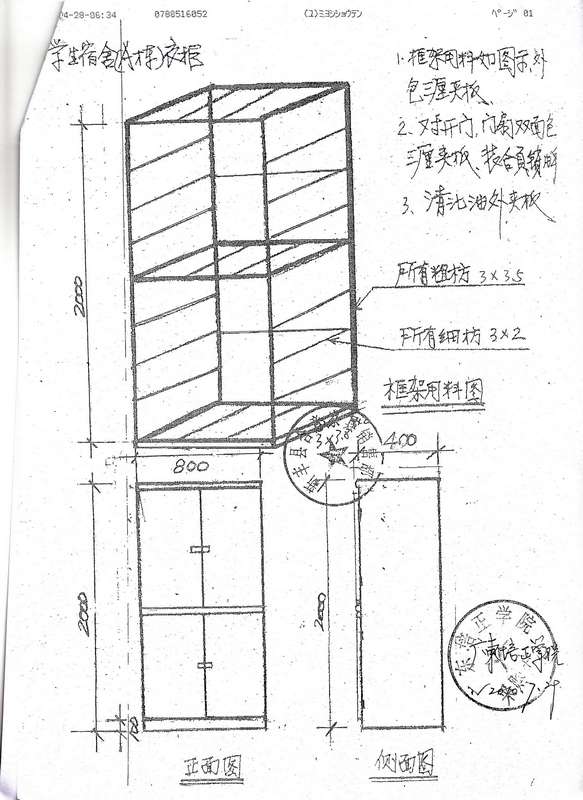 04-28-06:34 0788516052 (ユ)ミヨシショウテン ページ 01
学生宿舍(A栋)衣柜
1. 框架用料如图示,外
包三厘夹板、
2、对开门,门扇双面包
三厘夹板、装合頁鎖牌
3、清沘油外夹板
所有粗枋 3×3.5
所有细枋 3×2
框架用料图
2000
800
400
2000
2000
100
正面图
侧面图
东培正学院